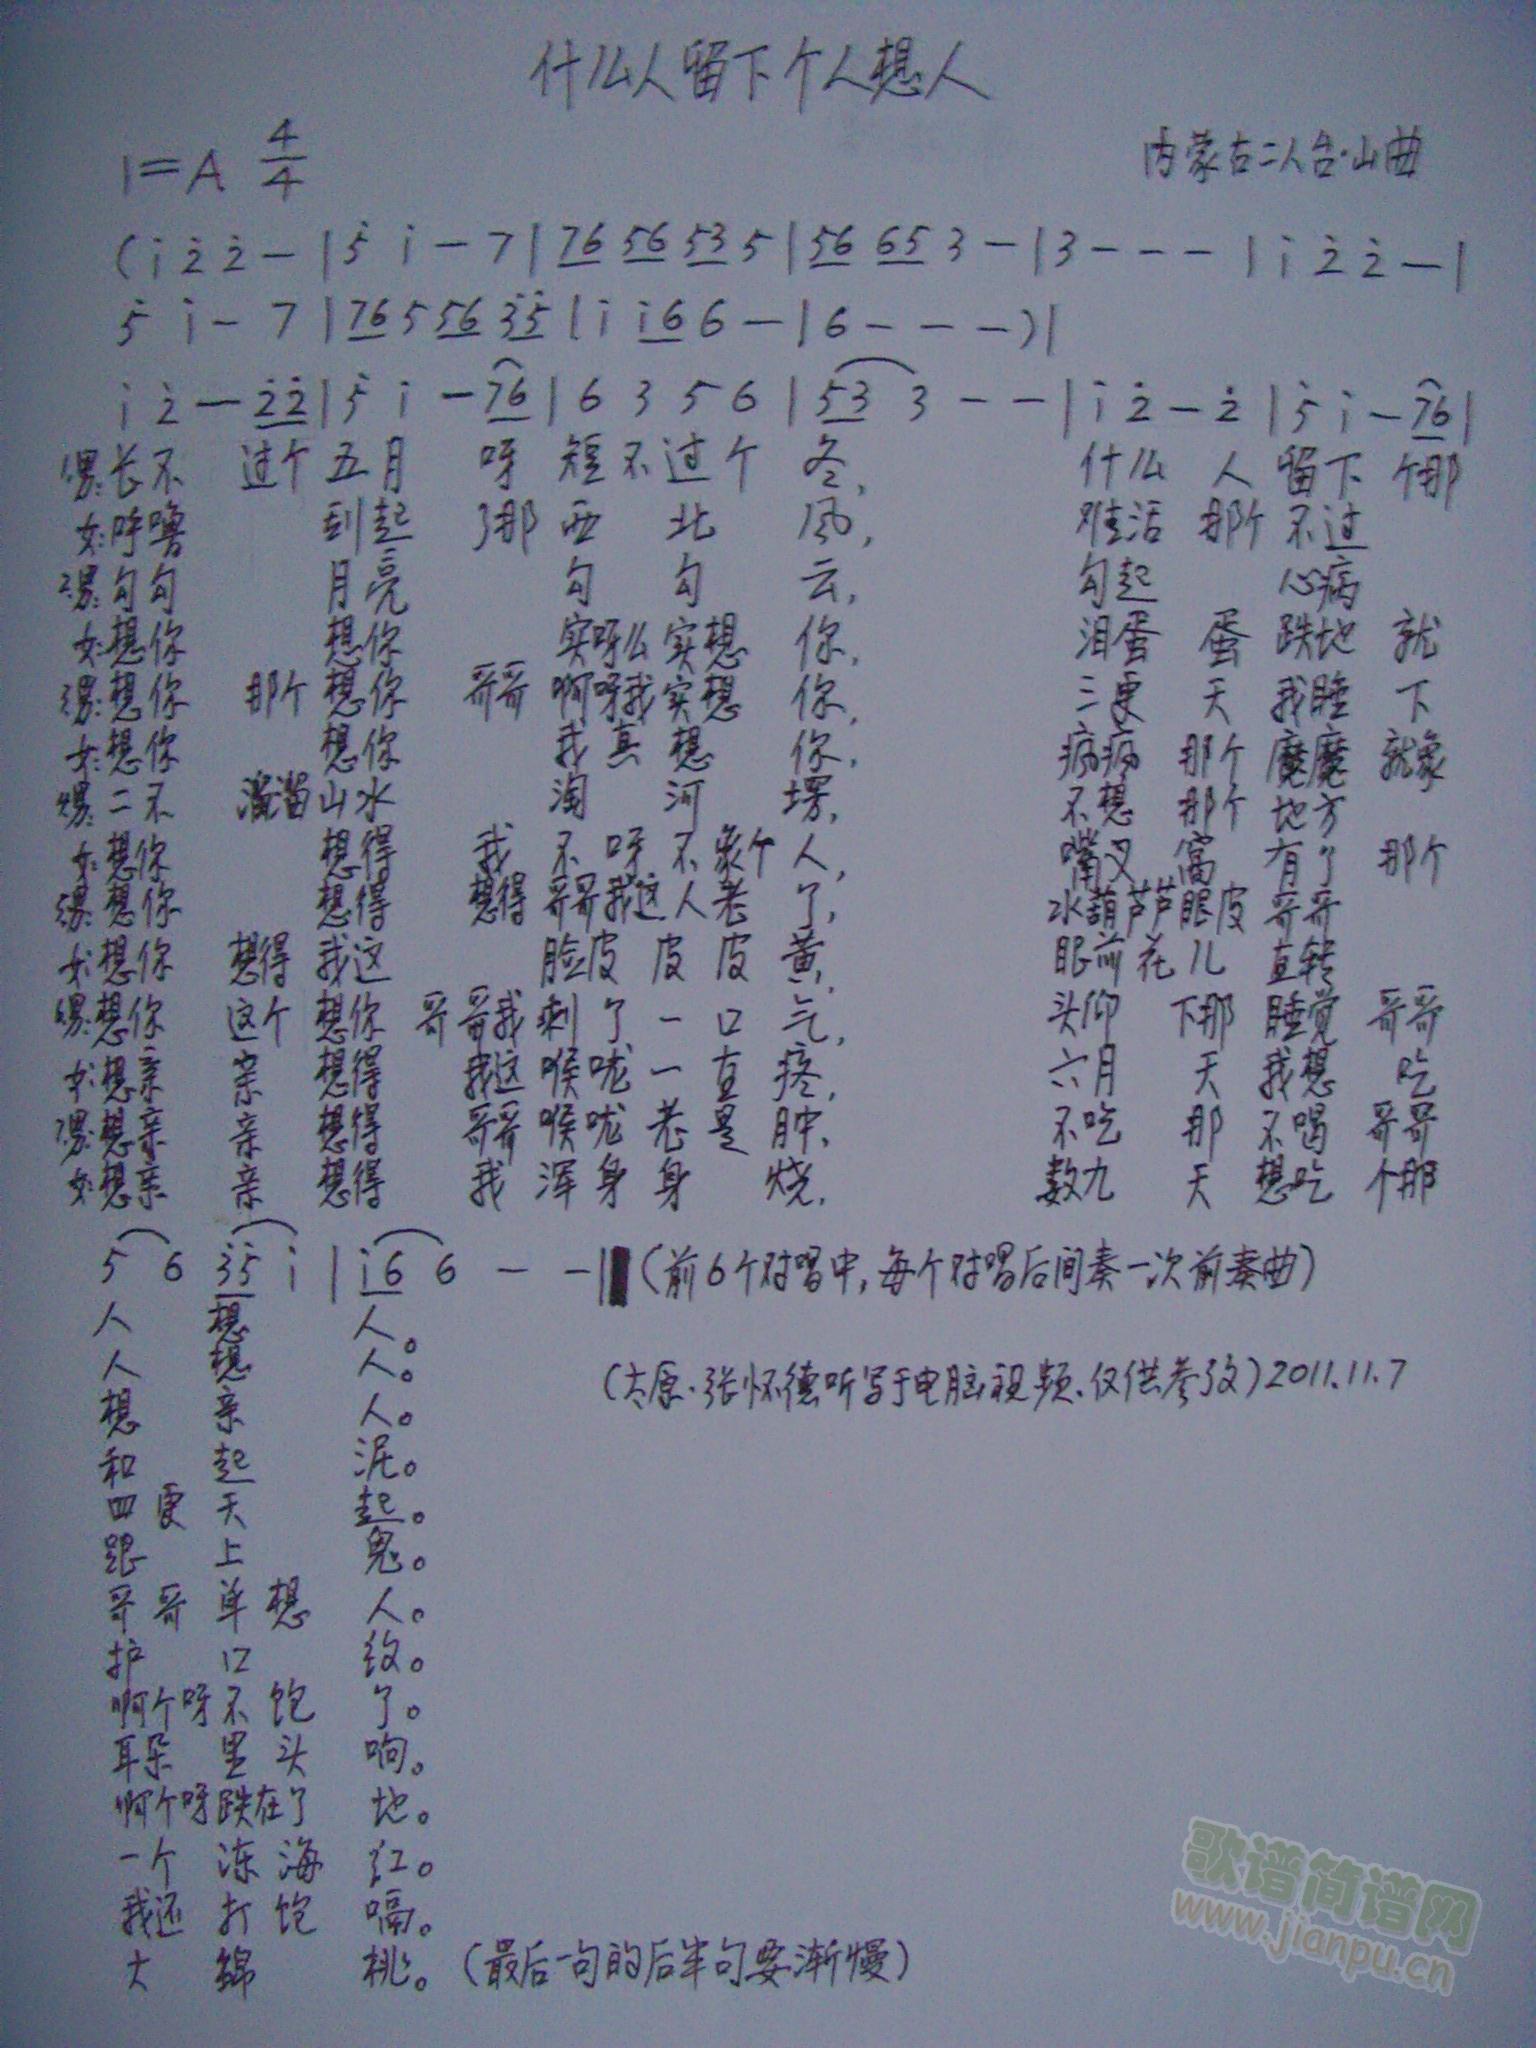 什么人留下个人想人
1=A 4/4
内蒙古二人台·山曲
(i̇ 2̇ 2̇ - | 5̇ i̇ - 7 | 76 56 53 5 | 56 65 3 - | 3 - - - | i̇ 2̇ 2̇ - |
5̇ i̇ - 7 | 76 5 56 3̇5̇ | i̇ i̇6 6 - | 6 - - - ) |
i̇ 2̇ - 2̇2̇ | 5̇ i̇ - 76 | 6 3 5 6 | 53 3 - - | i̇ 2̇ - 2̇ | 5̇ i̇ - 76 |
男:长不 过个 五月 呀 短不过个 冬, 什么 人 留下 个那
女:呼噜 到起 了那 西 北 风, 难活 那个 不过
男:勾勾 月亮 勾 勾 云, 勾起 心病
女:想你 想你 实呀么实想 你, 泪蛋 蛋 跌地 就
男:想你 那个 想你 哥哥 啊呀我实想 你, 三更 天 我睡 下
女:想你 想你 我真想 你, 病病 那个 魔魔 就象
男:二不 溜溜 山水 淘 河 塄, 不想 那个 地方
女:想你 想得 我 不呀不象个 人, 嘴叉 窝 有了 那个
男:想你 想得 想得 哥哥我这人老 了, 水葫芦芦眼皮 哥哥
女:想你 想得 我这 脸皮皮皮 黄, 眼前花儿 直转
男:想你 这个 想你 哥哥我 剩了一口 气, 头仰 下那 睡觉 哥哥
女:想亲 亲 想得 我这 喉咙一直 疼, 六月 天 我想 吃
男:想亲 亲 想得 哥哥 喉咙老是 肿, 不吃 那 不喝 哥哥
女:想亲 亲 想得 我 浑身身 烧, 数九 天 想吃 个那
5 6 3̇5̇ i̇ | i̇6 6 - - ‖ (前6个对唱中,每个对唱后间奏一次前奏曲)
人 想 人。
人 想 人。
(太原·张怀德听写于电脑视频、仅供参考)2011.11.7
想 亲 人。
和 起 泥。
四更 天 起。
跟 上 鬼。
哥哥 单想 人。
护 口 纹。
啊个呀不饱 了。
耳朵 里头 响。
啊个呀跌在了 地。
一个 冻海 红。
我还 打饱 嗝。
大 绵 桃。(最后一句的后半句要渐慢)
歌谱简谱网
www.jianpu.cn